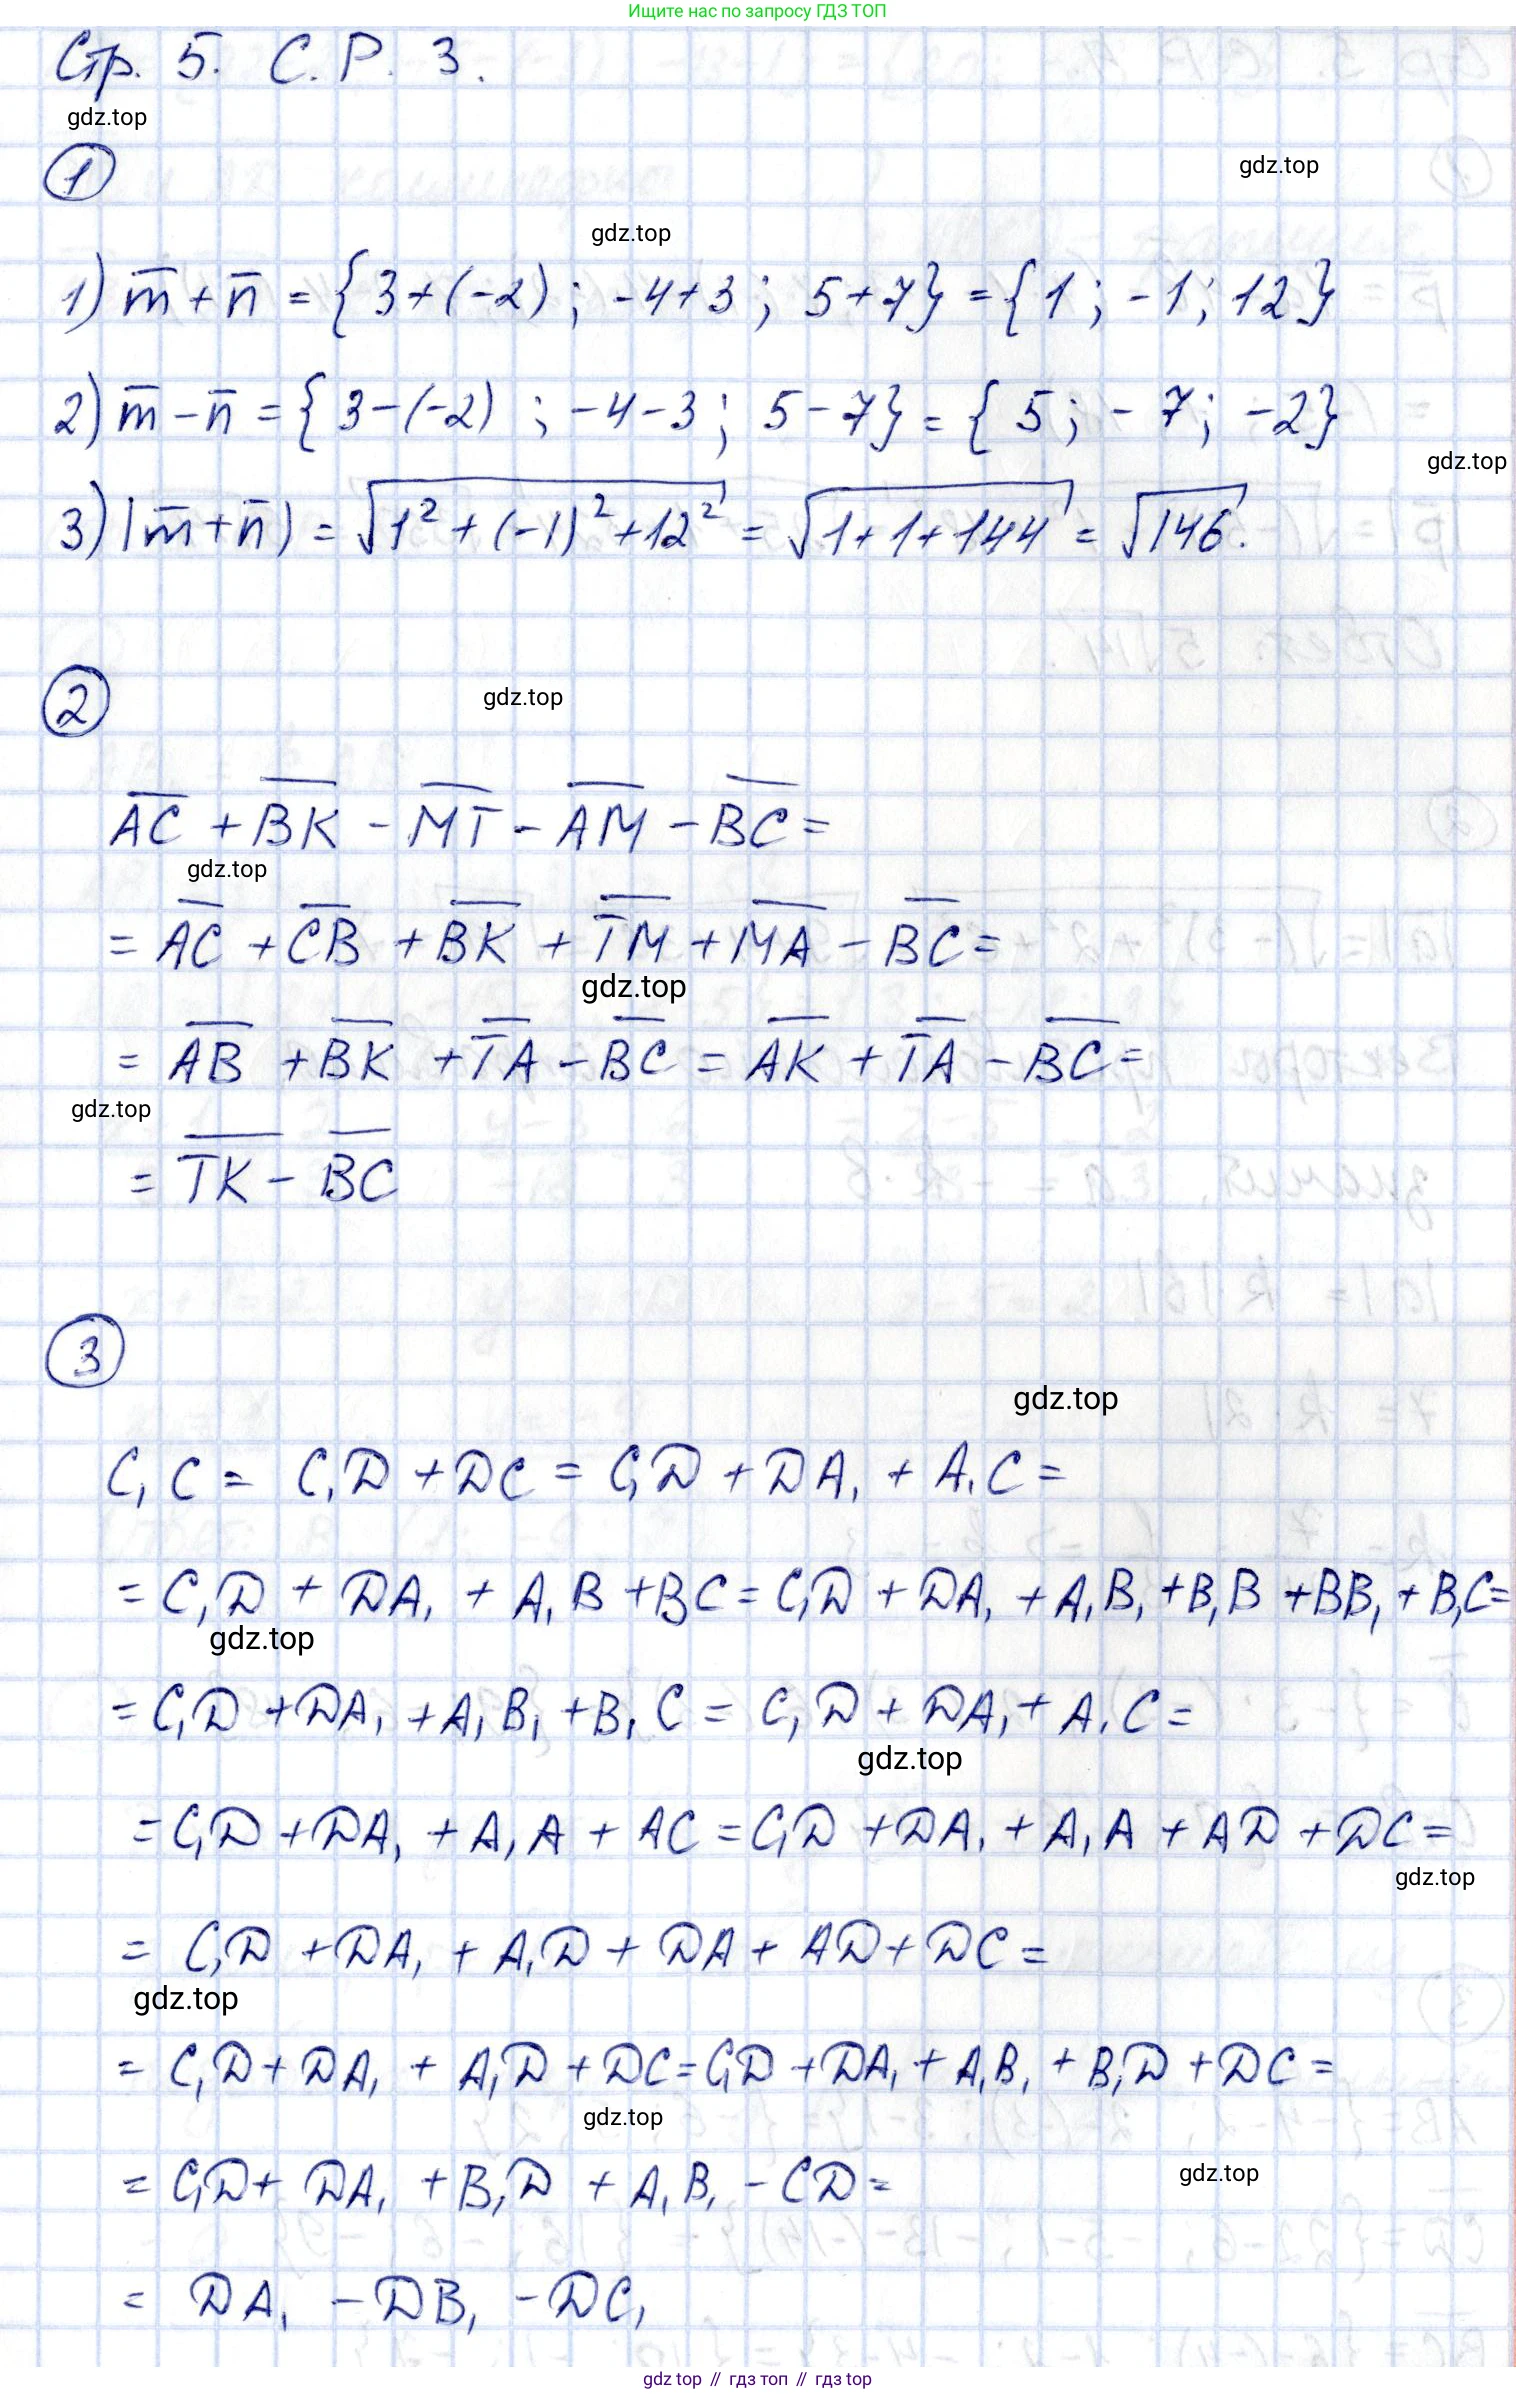 Ищите нас по запросу ГДЗ ТОП
Стр. 5. С. Р. 3.
gdz.top
1
gdz.top
gdz.top
1) m̅ + n̅ = {3+(-2); -4+3; 5+7} = {1; -1; 12}
2) m̅ - n̅ = {3-(-2); -4-3; 5-7} = {5; -7; -2}
gdz.top
3) |m̅ + n̅| = √(1² + (-1)² + 12²) = √(1+1+144) = √146.
2
gdz.top
A̅C̅ + B̅K̅ - M̅T̅ - A̅M̅ - B̅C̅ =
gdz.top
= A̅C̅ + C̅B̅ + B̅K̅ + T̅M̅ + M̅A̅ - B̅C̅ =
gdz.top
= A̅B̅ + B̅K̅ + T̅A̅ - B̅C̅ = A̅K̅ + T̅A̅ - B̅C̅ =
gdz.top
= T̅K̅ - B̅C̅
3
gdz.top
C₁C = C₁D + DC = C₁D + DA₁ + A₁C =
= C₁D + DA₁ + A₁B + BC = C₁D + DA₁ + A₁B₁ + B₁B + BB₁ + B₁C =
gdz.top
= C₁D + DA₁ + A₁B₁ + B₁C = C₁D + DA₁ + A₁C =
gdz.top
= C₁D + DA₁ + A₁A + AC = C₁D + DA₁ + A₁A + AD + DC =
gdz.top
= C₁D + DA₁ + A₁D + DA + AD + DC =
gdz.top
= C₁D + DA₁ + A₁D + DC = C₁D + DA₁ + A₁B₁ + B₁D + DC =
gdz.top
= C₁D + DA₁ + B₁D + A₁B₁ - CD =
gdz.top
= DA₁ - DB₁ - DC₁
gdz top // гдз топ // гдз top